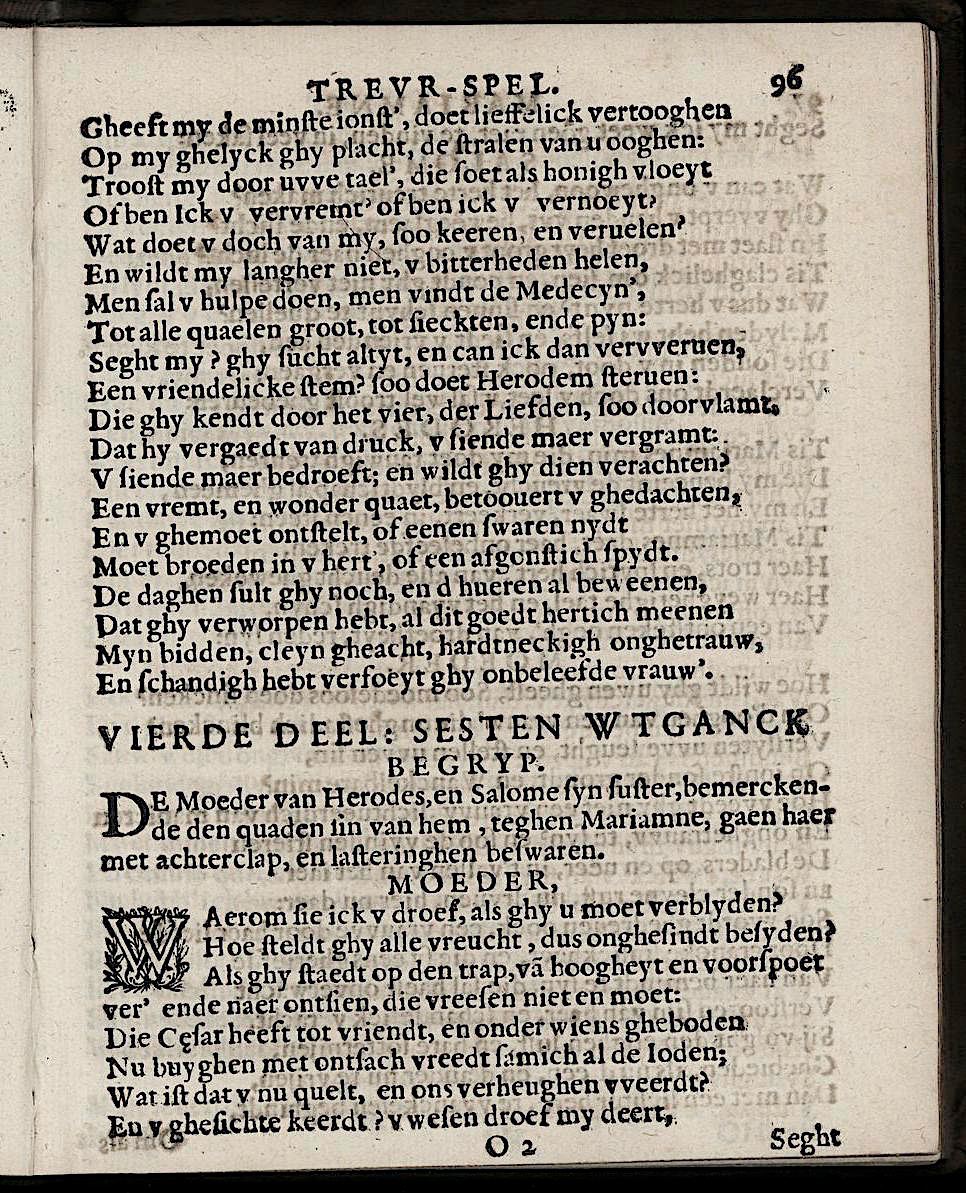 TREVR-SPEL. 96
Gheeft my de minſte ionſt', doet lieffelick vertooghen
Op my ghelyck ghy placht, de ſtralen van u ooghen:
Trooſt my door uvve tael', die ſoet als honigh vloeyt
Of ben Ick v vervremt' of ben ick v vernoeyt?
Wat doet v doch van my, ſoo keeren, en veruelen?
En wildt my langher niet, v bitterheden helen,
Men ſal v hulpe doen, men vindt de Medecyn',
Tot alle quaelen groot, tot ſieckten, ende pyn:
Seght my ? ghy ſucht altyt, en can ick dan vervveruen,
Een vriendelicke ſtem? ſoo doet Herodem ſteruen:
Die ghy kendt door het vier, der Liefden, ſoo doorvlamt.
Dat hy vergaedt van druck, v ſiende maer vergramt:
V ſiende maer bedroeft; en wildt ghy dien verachten?
Een vremt, en wonder quaet, betoouert v ghedachten,
En v ghemoet ontſtelt, of eenen ſwaren nydt
Moet broeden in v hert', of een afgonſtich ſpydt.
De daghen ſult ghy noch, en d hueren al beweenen,
Dat ghy verworpen hebt, al dit goedt hertich meenen
Myn bidden, cleyn gheacht, hardtneckigh onghetrauw,
En ſchandigh hebt verfoeyt ghy onbeleefde vrauw'.
VIERDE DEEL: SESTEN WTGANCK
BEGRYP.
DE Moeder van Herodes,en Salome ſyn ſuſter,bemercken-
de den quaden ſin van hem , teghen Mariamne, gaen haer
met achterclap, en laſteringhen beſwaren.
MOEDER,
WAerom ſie ick v droef, als ghy u moet verblyden?
Hoe ſteldt ghy alle vreucht , dus ongheſindt beſyden?
Als ghy ſtaedt op den trap,vã hoogheyt en voorſpoet
ver' ende naer ontſien, die vreeſen niet en moet:
Die Cęſar heeft tot vriendt, en onder wiens gheboden
Nu buyghen met ontſach vreedt ſamich al de Ioden;
Wat iſt dat v nu quelt, en ons verheughen vveerdt?
En v gheſichte keerdt ? v weſen droef my deert,
O 2 Seght